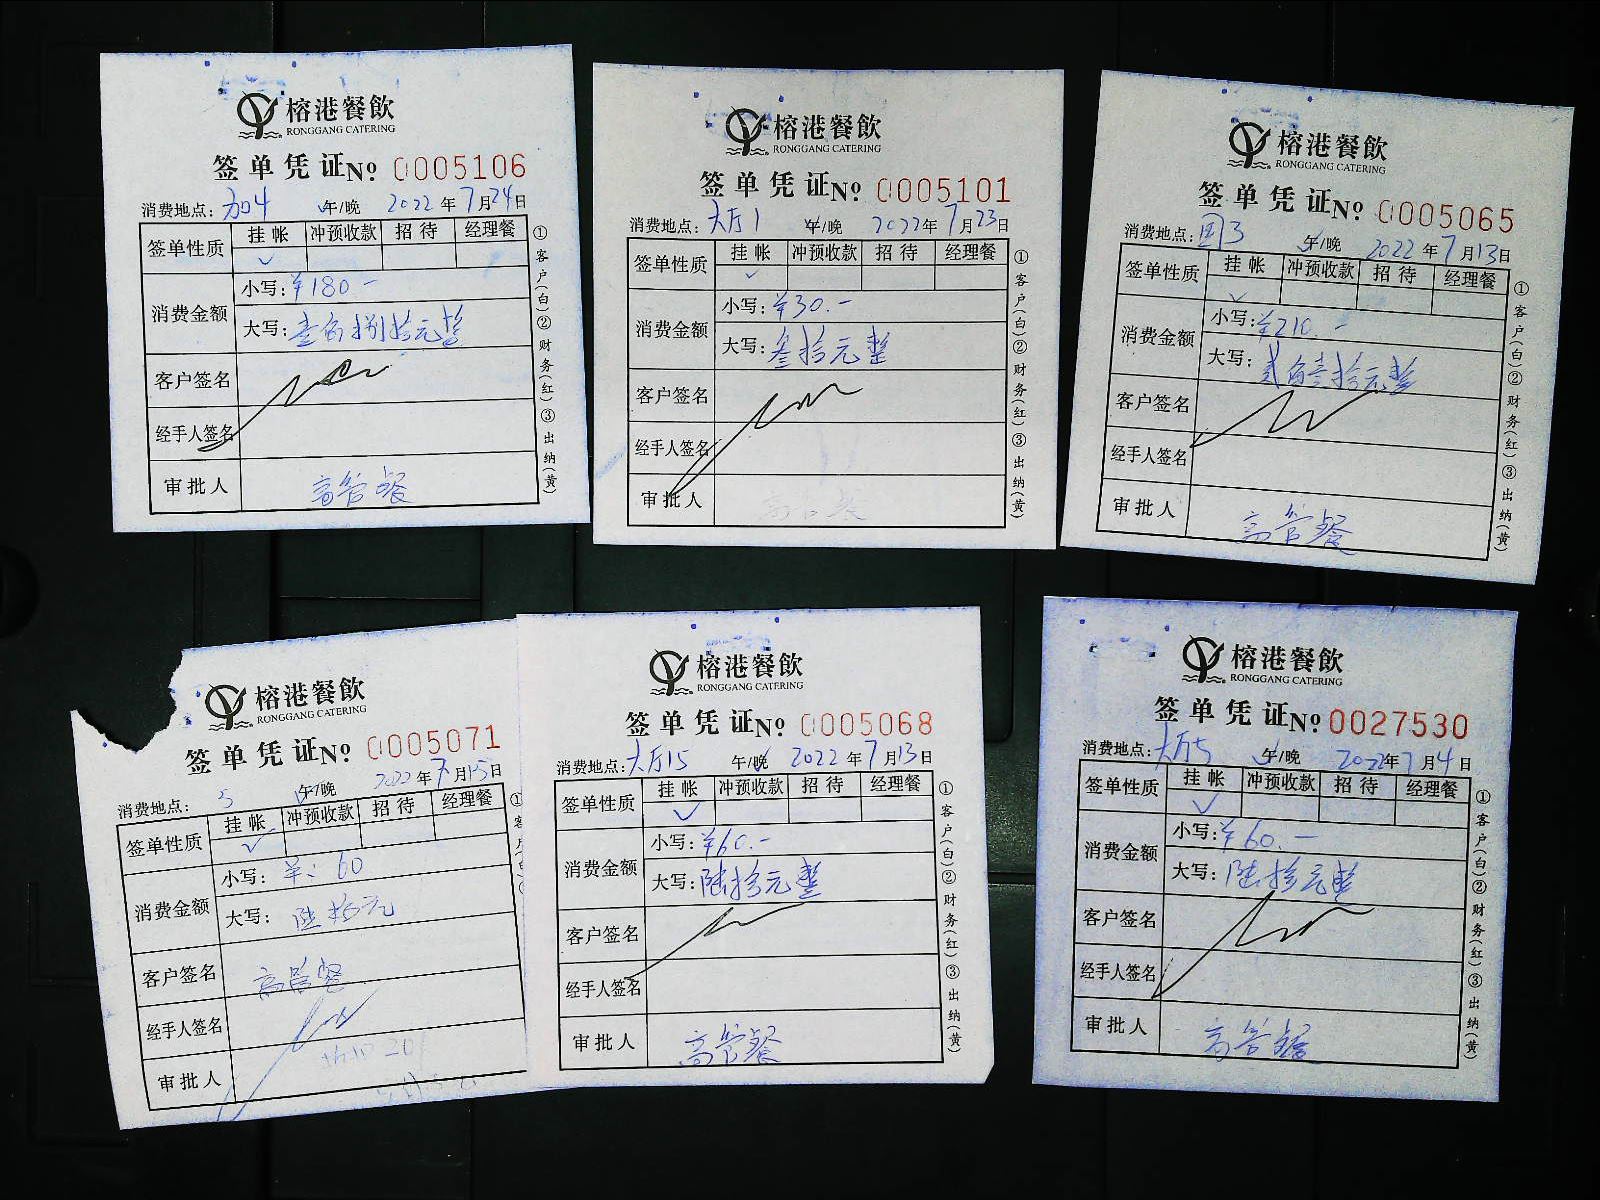 榕港餐飲
RONGGANG CATERING
签单凭证№ 0005106
消费地点: 加4 午/晚 2022年7月24日
签单性质 挂帐 冲预收款 招待 经理餐
✓
消费金额 小写:¥180-
大写:壹佰捌拾元整
客户签名
经手人签名
审批人 高管餐
①客户(白)②财务(红)③出纳(黄)
榕港餐飲
RONGGANG CATERING
签单凭证№ 0005101
消费地点: 大厅1 午/晚 2022年7月23日
签单性质 挂帐 冲预收款 招待 经理餐
✓
消费金额 小写:¥30.-
大写:叁拾元整
客户签名
经手人签名
审批人 高管餐
①客户(白)②财务(红)③出纳(黄)
榕港餐飲
RONGGANG CATERING
签单凭证№ 0005065
消费地点: 园3 午/晚 2022年7月13日
签单性质 挂帐 冲预收款 招待 经理餐
✓
消费金额 小写:¥210.-
大写:贰佰壹拾元整
客户签名
经手人签名
审批人 高管餐
①客户(白)②财务(红)③出纳(黄)
榕港餐飲
RONGGANG CATERING
签单凭证№ 0005071
消费地点: 5 午/晚 2022年7月15日
签单性质 挂帐 冲预收款 招待 经理餐
✓
消费金额 小写:羊:60
大写:陆拾元
客户签名 高管餐
经手人签名
审批人
榕港餐飲
RONGGANG CATERING
签单凭证№ 0005068
消费地点: 大厅15 午/晚 2022年7月13日
签单性质 挂帐 冲预收款 招待 经理餐
✓
消费金额 小写:¥60.-
大写:陆拾元整
客户签名
经手人签名
审批人 高管餐
①客户(白)②财务(红)③出纳(黄)
榕港餐飲
RONGGANG CATERING
签单凭证№ 0027530
消费地点: 大厅5 午/晚 2022年7月4日
签单性质 挂帐 冲预收款 招待 经理餐
✓
消费金额 小写:¥60.-
大写:陆拾元整
客户签名
经手人签名
审批人 高管餐
①客户(白)②财务(红)③出纳(黄)